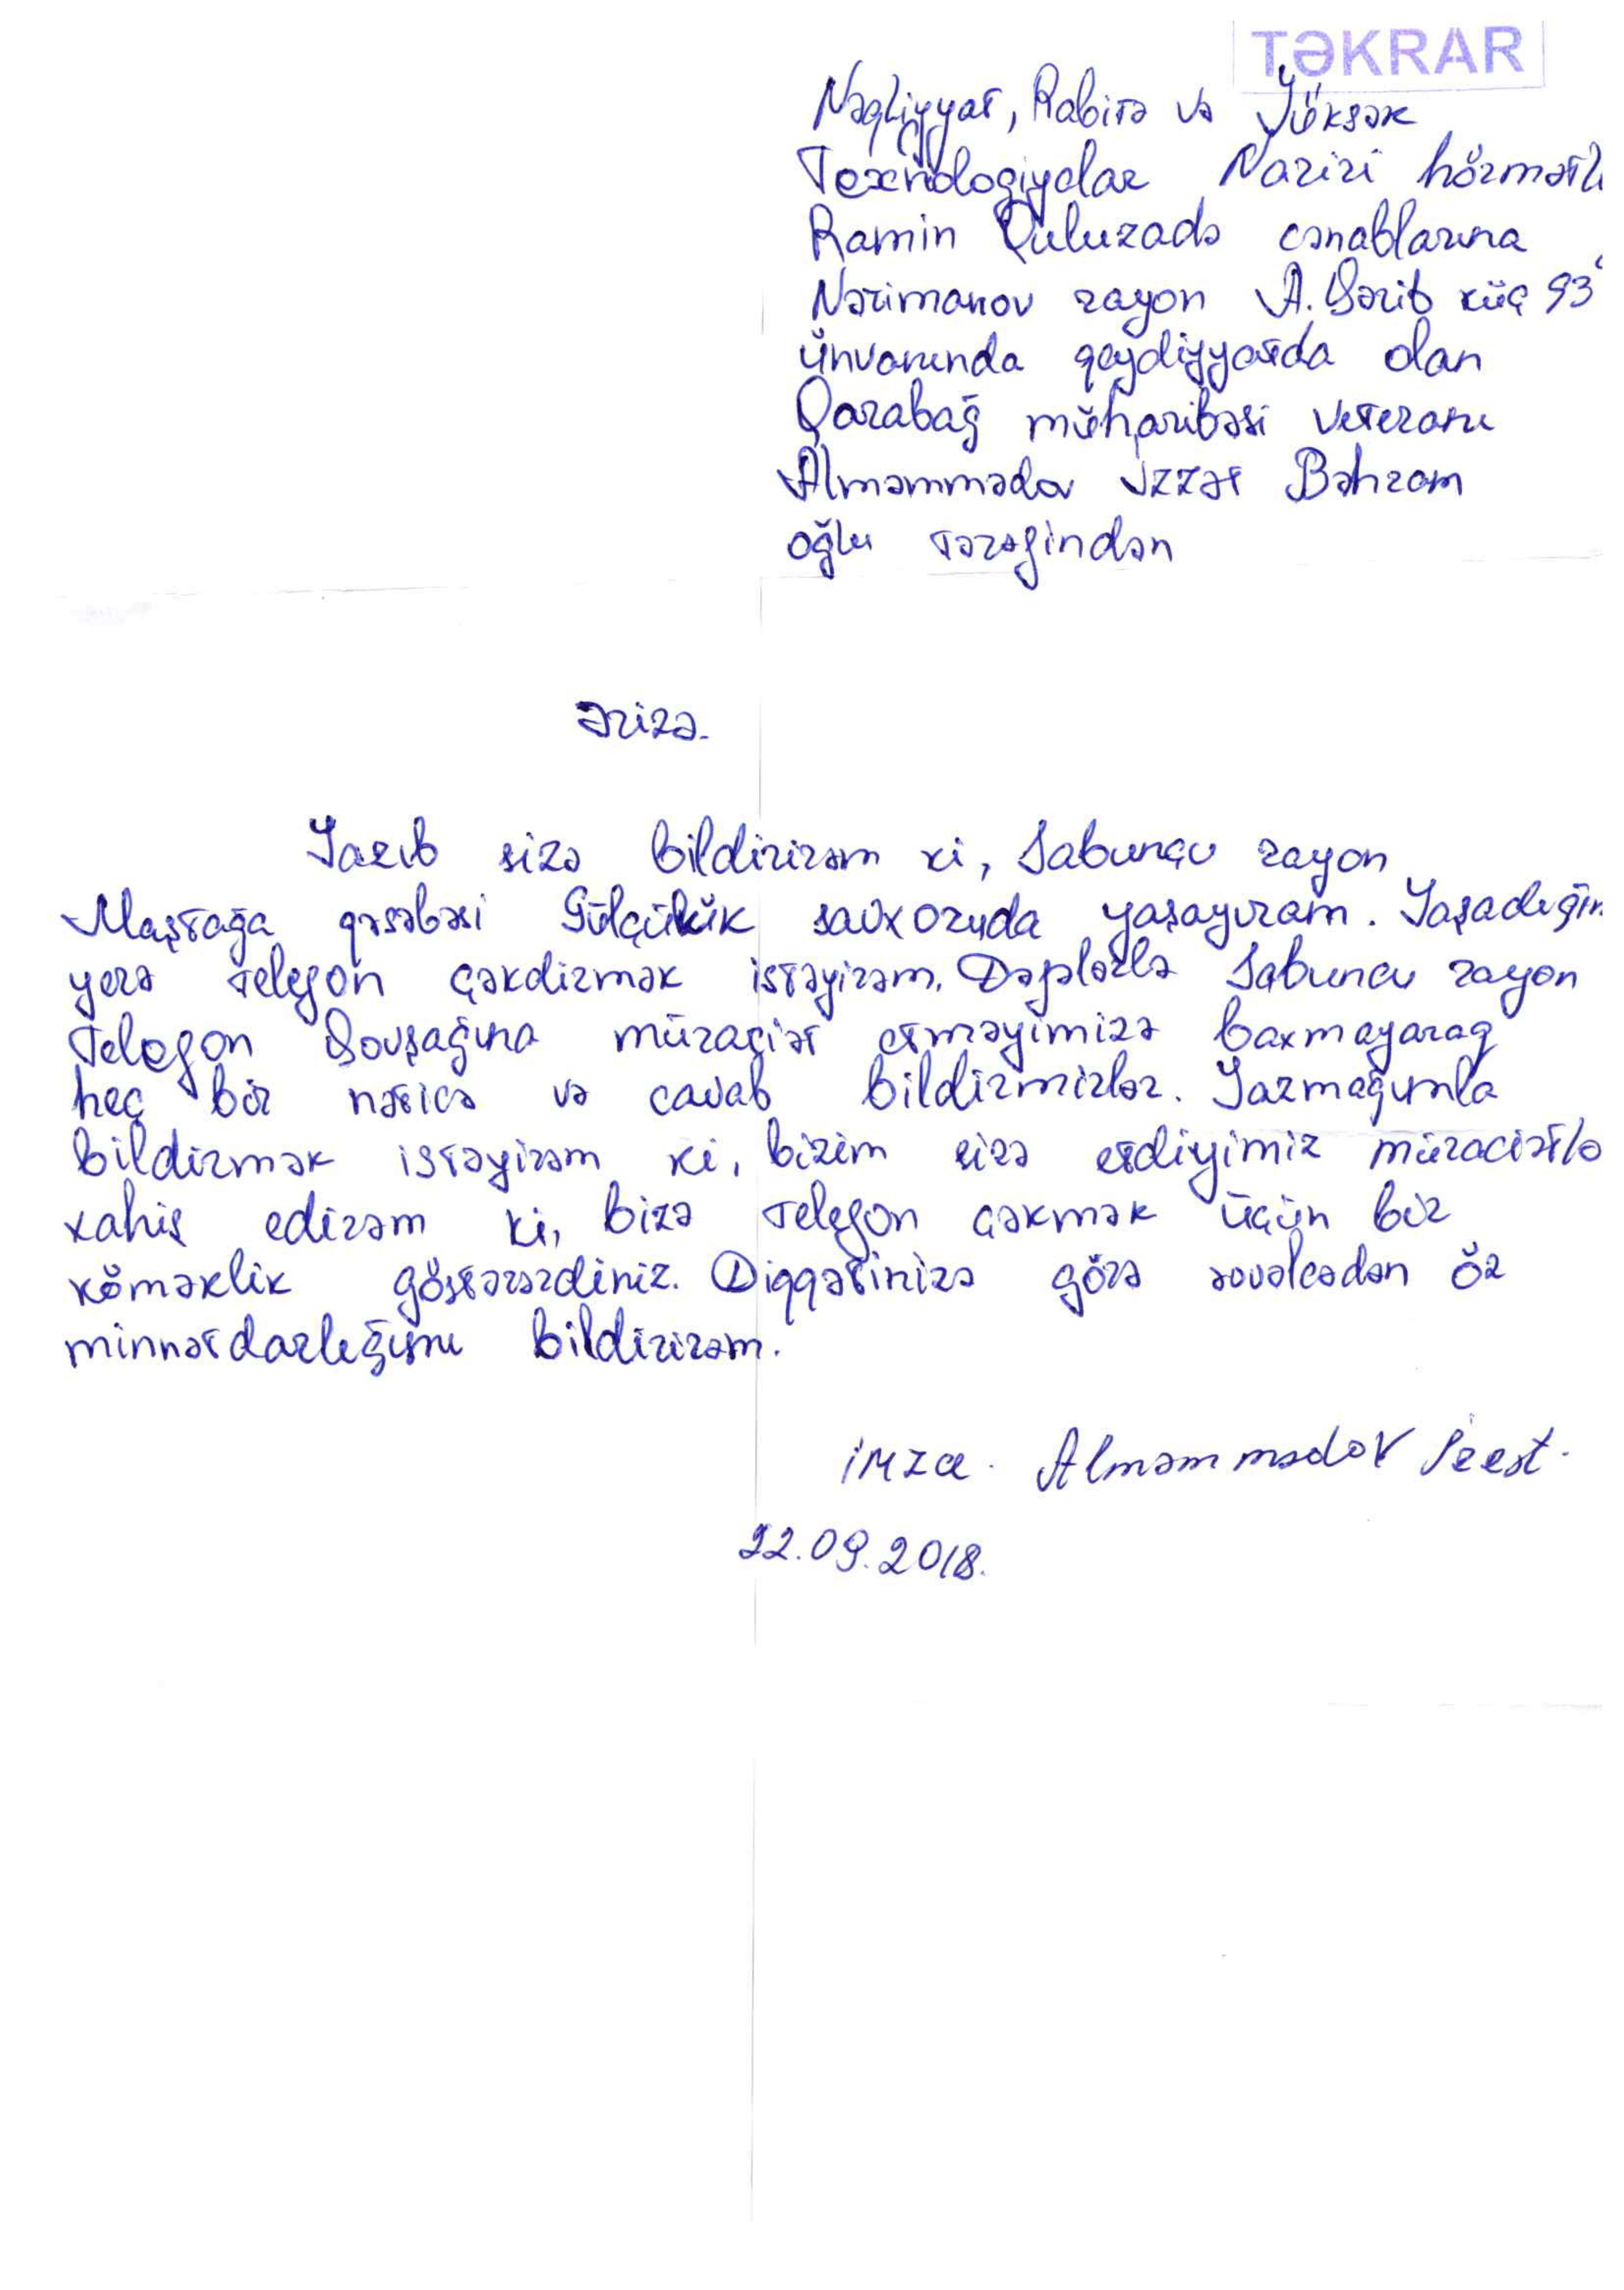 TƏKRAR
Nəqliyyat, Rabitə və Yüksək
Texnologiyalar Naziri hörmətli
Ramin Quluzadə cənablarına
Nərimanov rayon A. Qərib küç 93
ünvanında qeydiyyatda olan
Qarabağ müharibəsi veteranı
Alməmmədov İzzət Bəhram
oğlu tərəfindən
Ərizə.
Yazıb sizə bildirirəm ki, Sabunçu rayon
Maştağa qəsəbəsi Gülçülük savxozunda yaşayıram. Yaşadığım
yerə telefon çəkdirmək istəyirəm. Dəfələrlə Sabunçu rayon
Telefon Qovşağına müraciət etməyimizə baxmayaraq
heç bir nəticə və cavab bildirmirlər. Yazmağımla
bildirmək istəyirəm ki, bizim sizə etdiyimiz müraciətlə
xahiş edirəm ki, bizə telefon çəkmək üçün bir
köməklik göstərərdiniz. Diqqətinizə görə əvvəlcədən öz
minnətdarlığımı bildirirəm.
imza. Alməmmədov
22.09.2018.